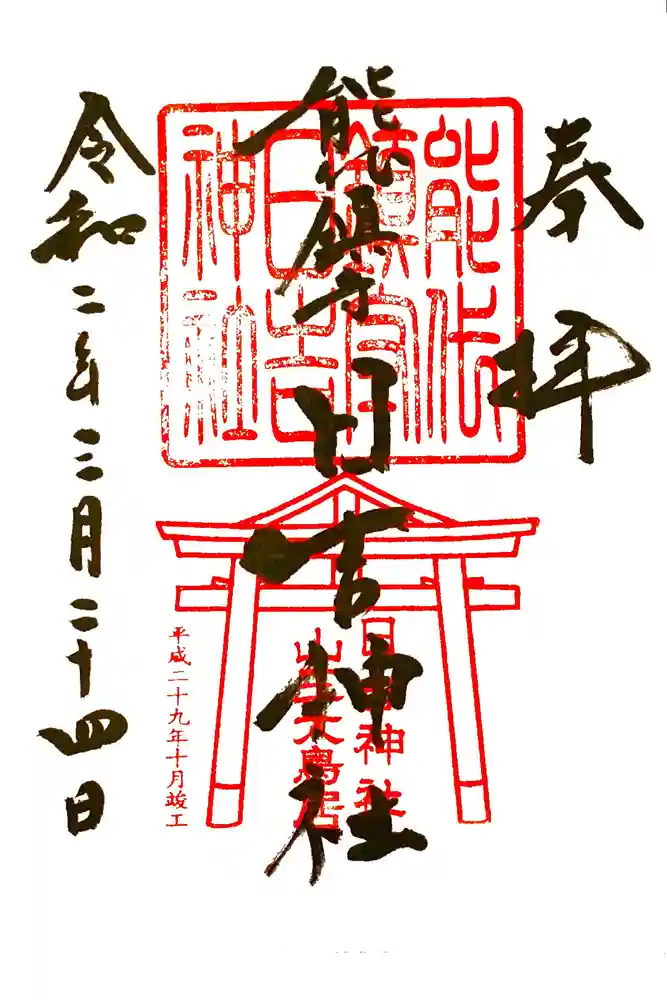 奉拝
能代鎮守日吉神社
能代
鎮守
日吉
神社
日吉神社
山王大鳥居
平成二十九年十月竣工
令和二年三月二十四日